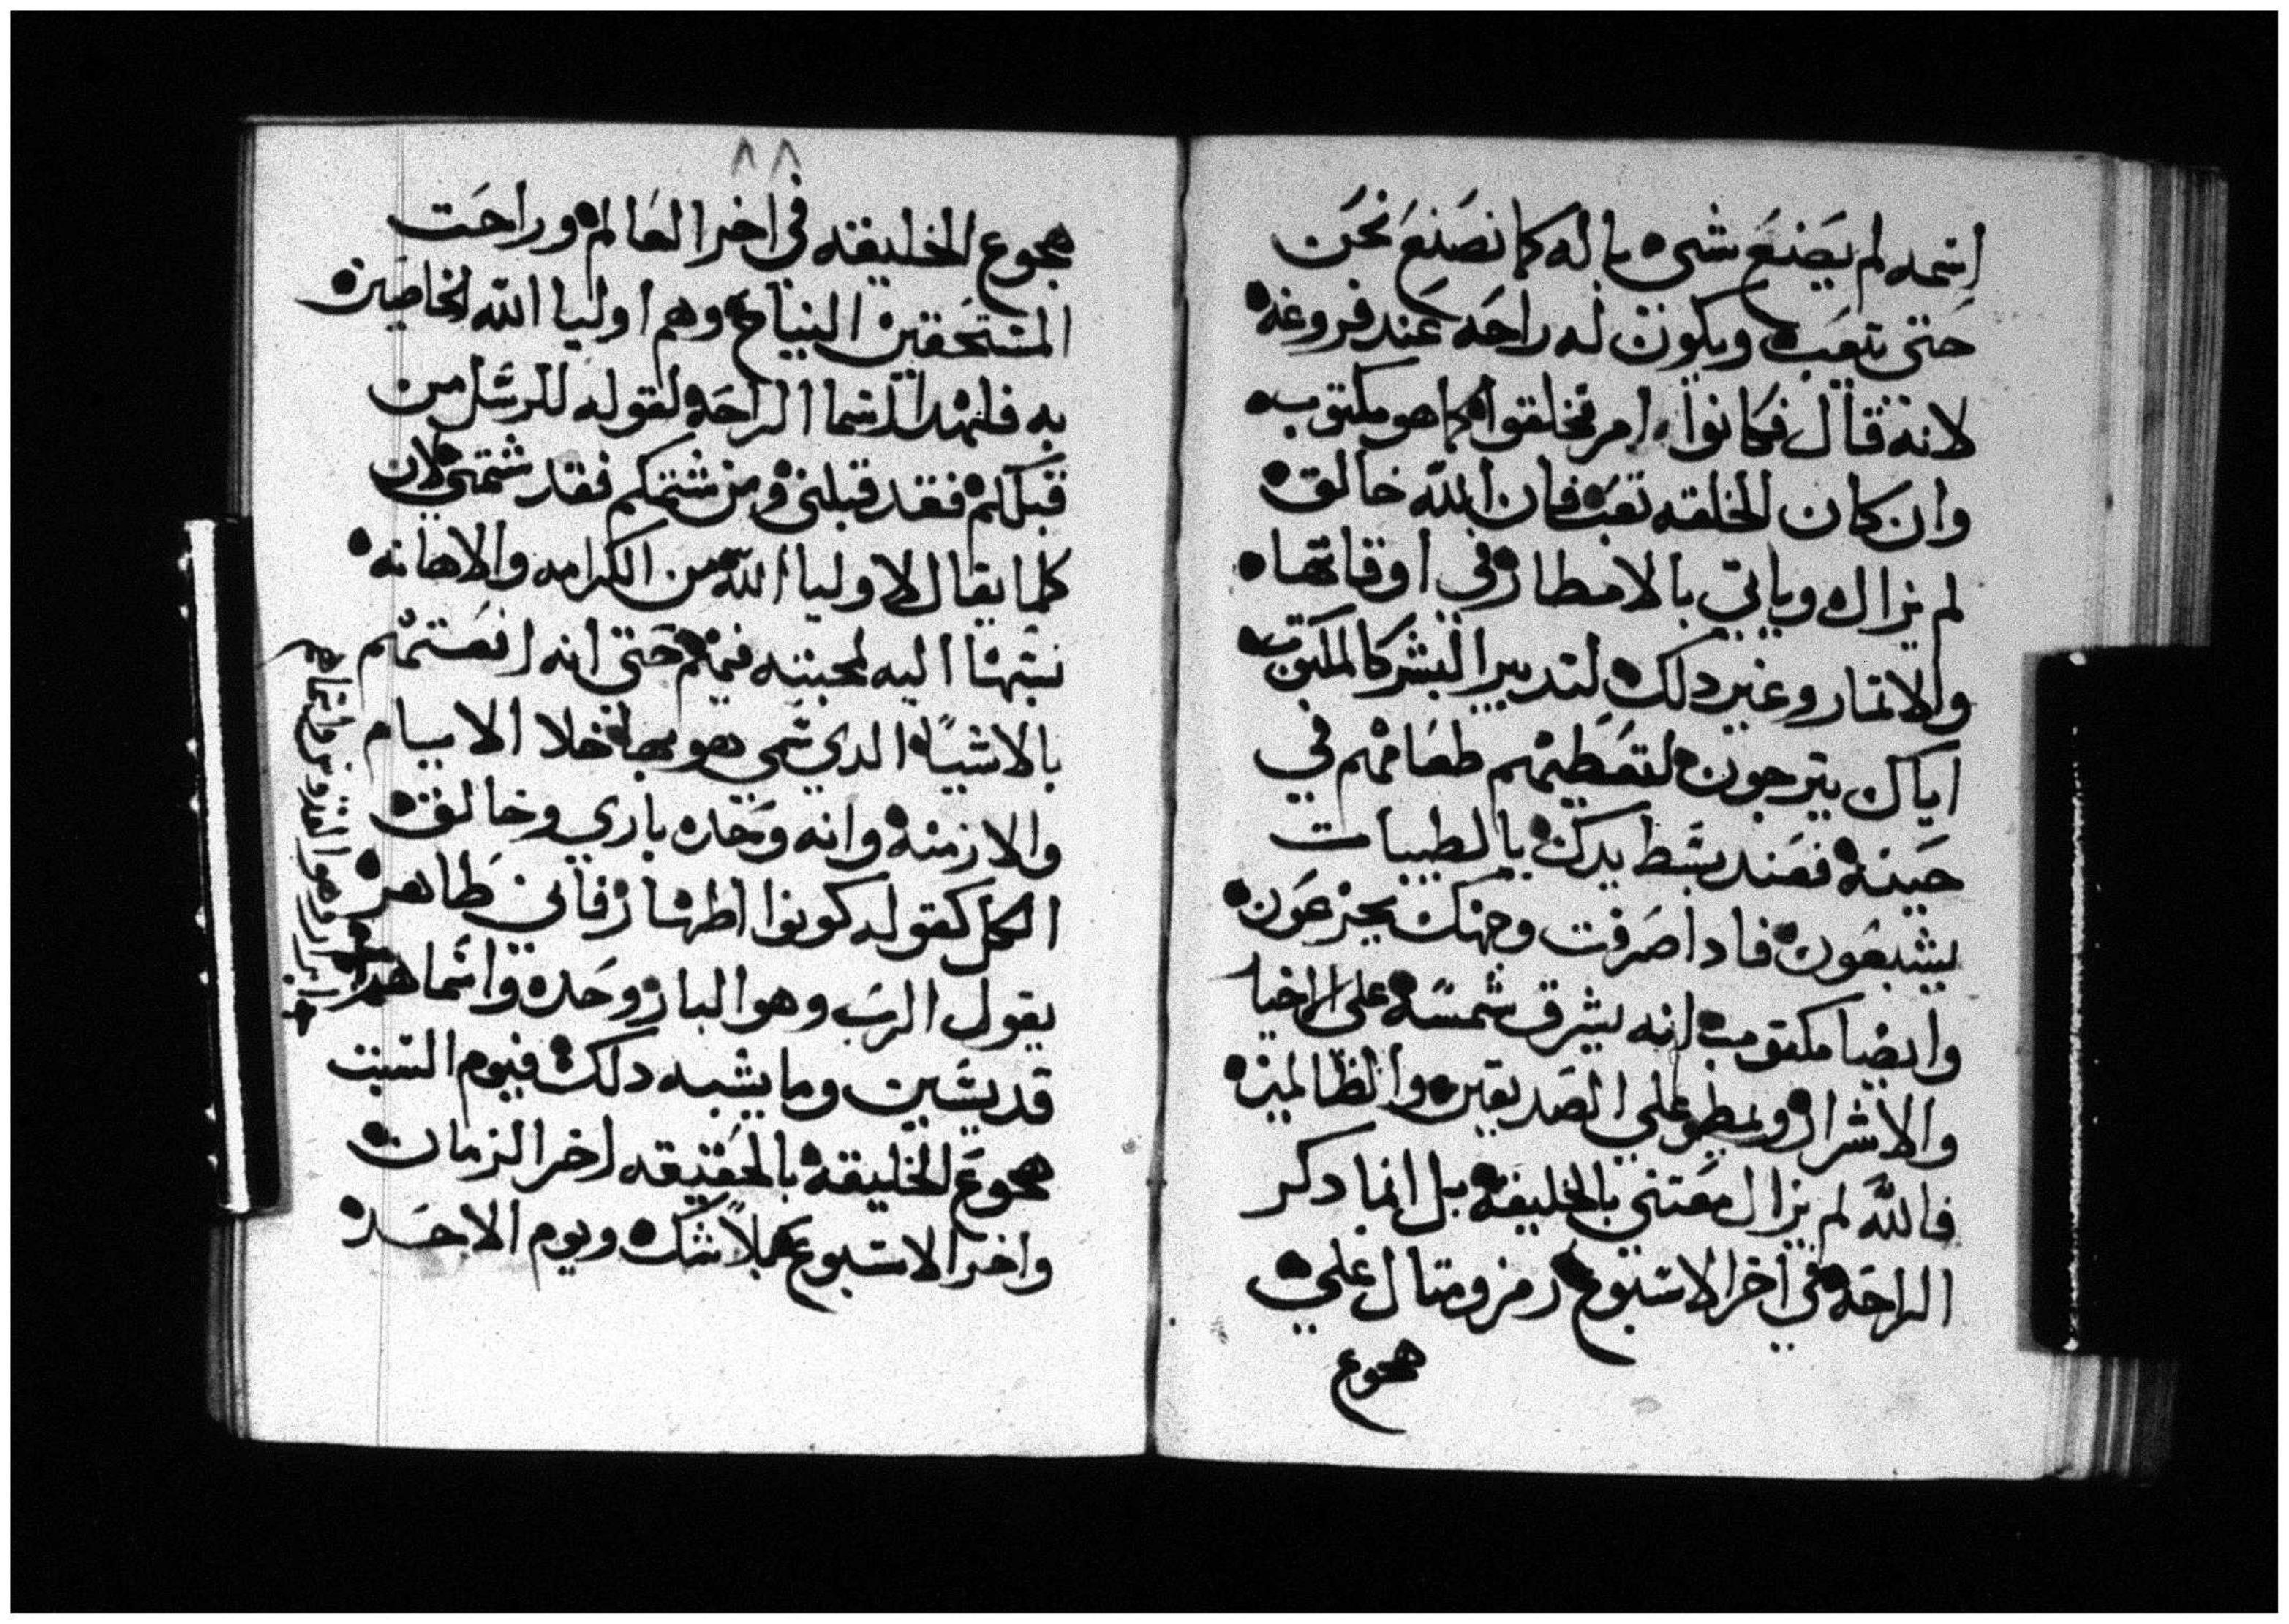 اسمه لم يصنع شي بالة كما نصنع نحن
حتي يتعب ويكون له راحه عند فروغه
لانه قال فكانوا امر تخلقوا كما هو مكتوب
وان كان الخلقه تعب فان الله خالق
لم يزال وياتي بالامطار في اوقاتها
والاتمار وغير دلك لتدبير البشر كالمكتوب
اياك يترجون لتعطيهم طعامهم في
حينه فعند بسط يدك بالطيبات
يشبعون فادا صرفت وجهك يجزعون
وايضا مكتوب انه يشرق شمسه علي الاخيا
والاشرار ويمطر علي الصديقين والظالمين
فالله لم يزال معتني بالخليقة بل انما دكر
الراحه في اخر الاسبوع رمز ومتال علي
هجوع
٨٨
هجوع الخليقه في اخر العالم وراحت
المستحقين النياح وهم اوليا الله الخاصين
به فلهدا اسما الراحه لقوله للرسل من
قبلكم فقد قبلني ومن شتمكم فقد شتمني لان
كلما يقال لاوليا الله من الكرامه والاهانه
نسبها اليه لمحبته فيهم حتي انه انعتهم
بالاشياء الدي سمي هو بها خلا الايام
والازمنه وانه وحده باري وخالق
الكل كقوله كونوا اطهار فاني طاهر
يقول الرب وهو البار وحده واسماهم
قديسين وما يشبه دلك فيوم السبت
هجوع الخليقة بالحقيقه اخر الزمان
واخر الاسبوع بلا شك ويوم الاحد
ابرار وهو القدوس واسماهم